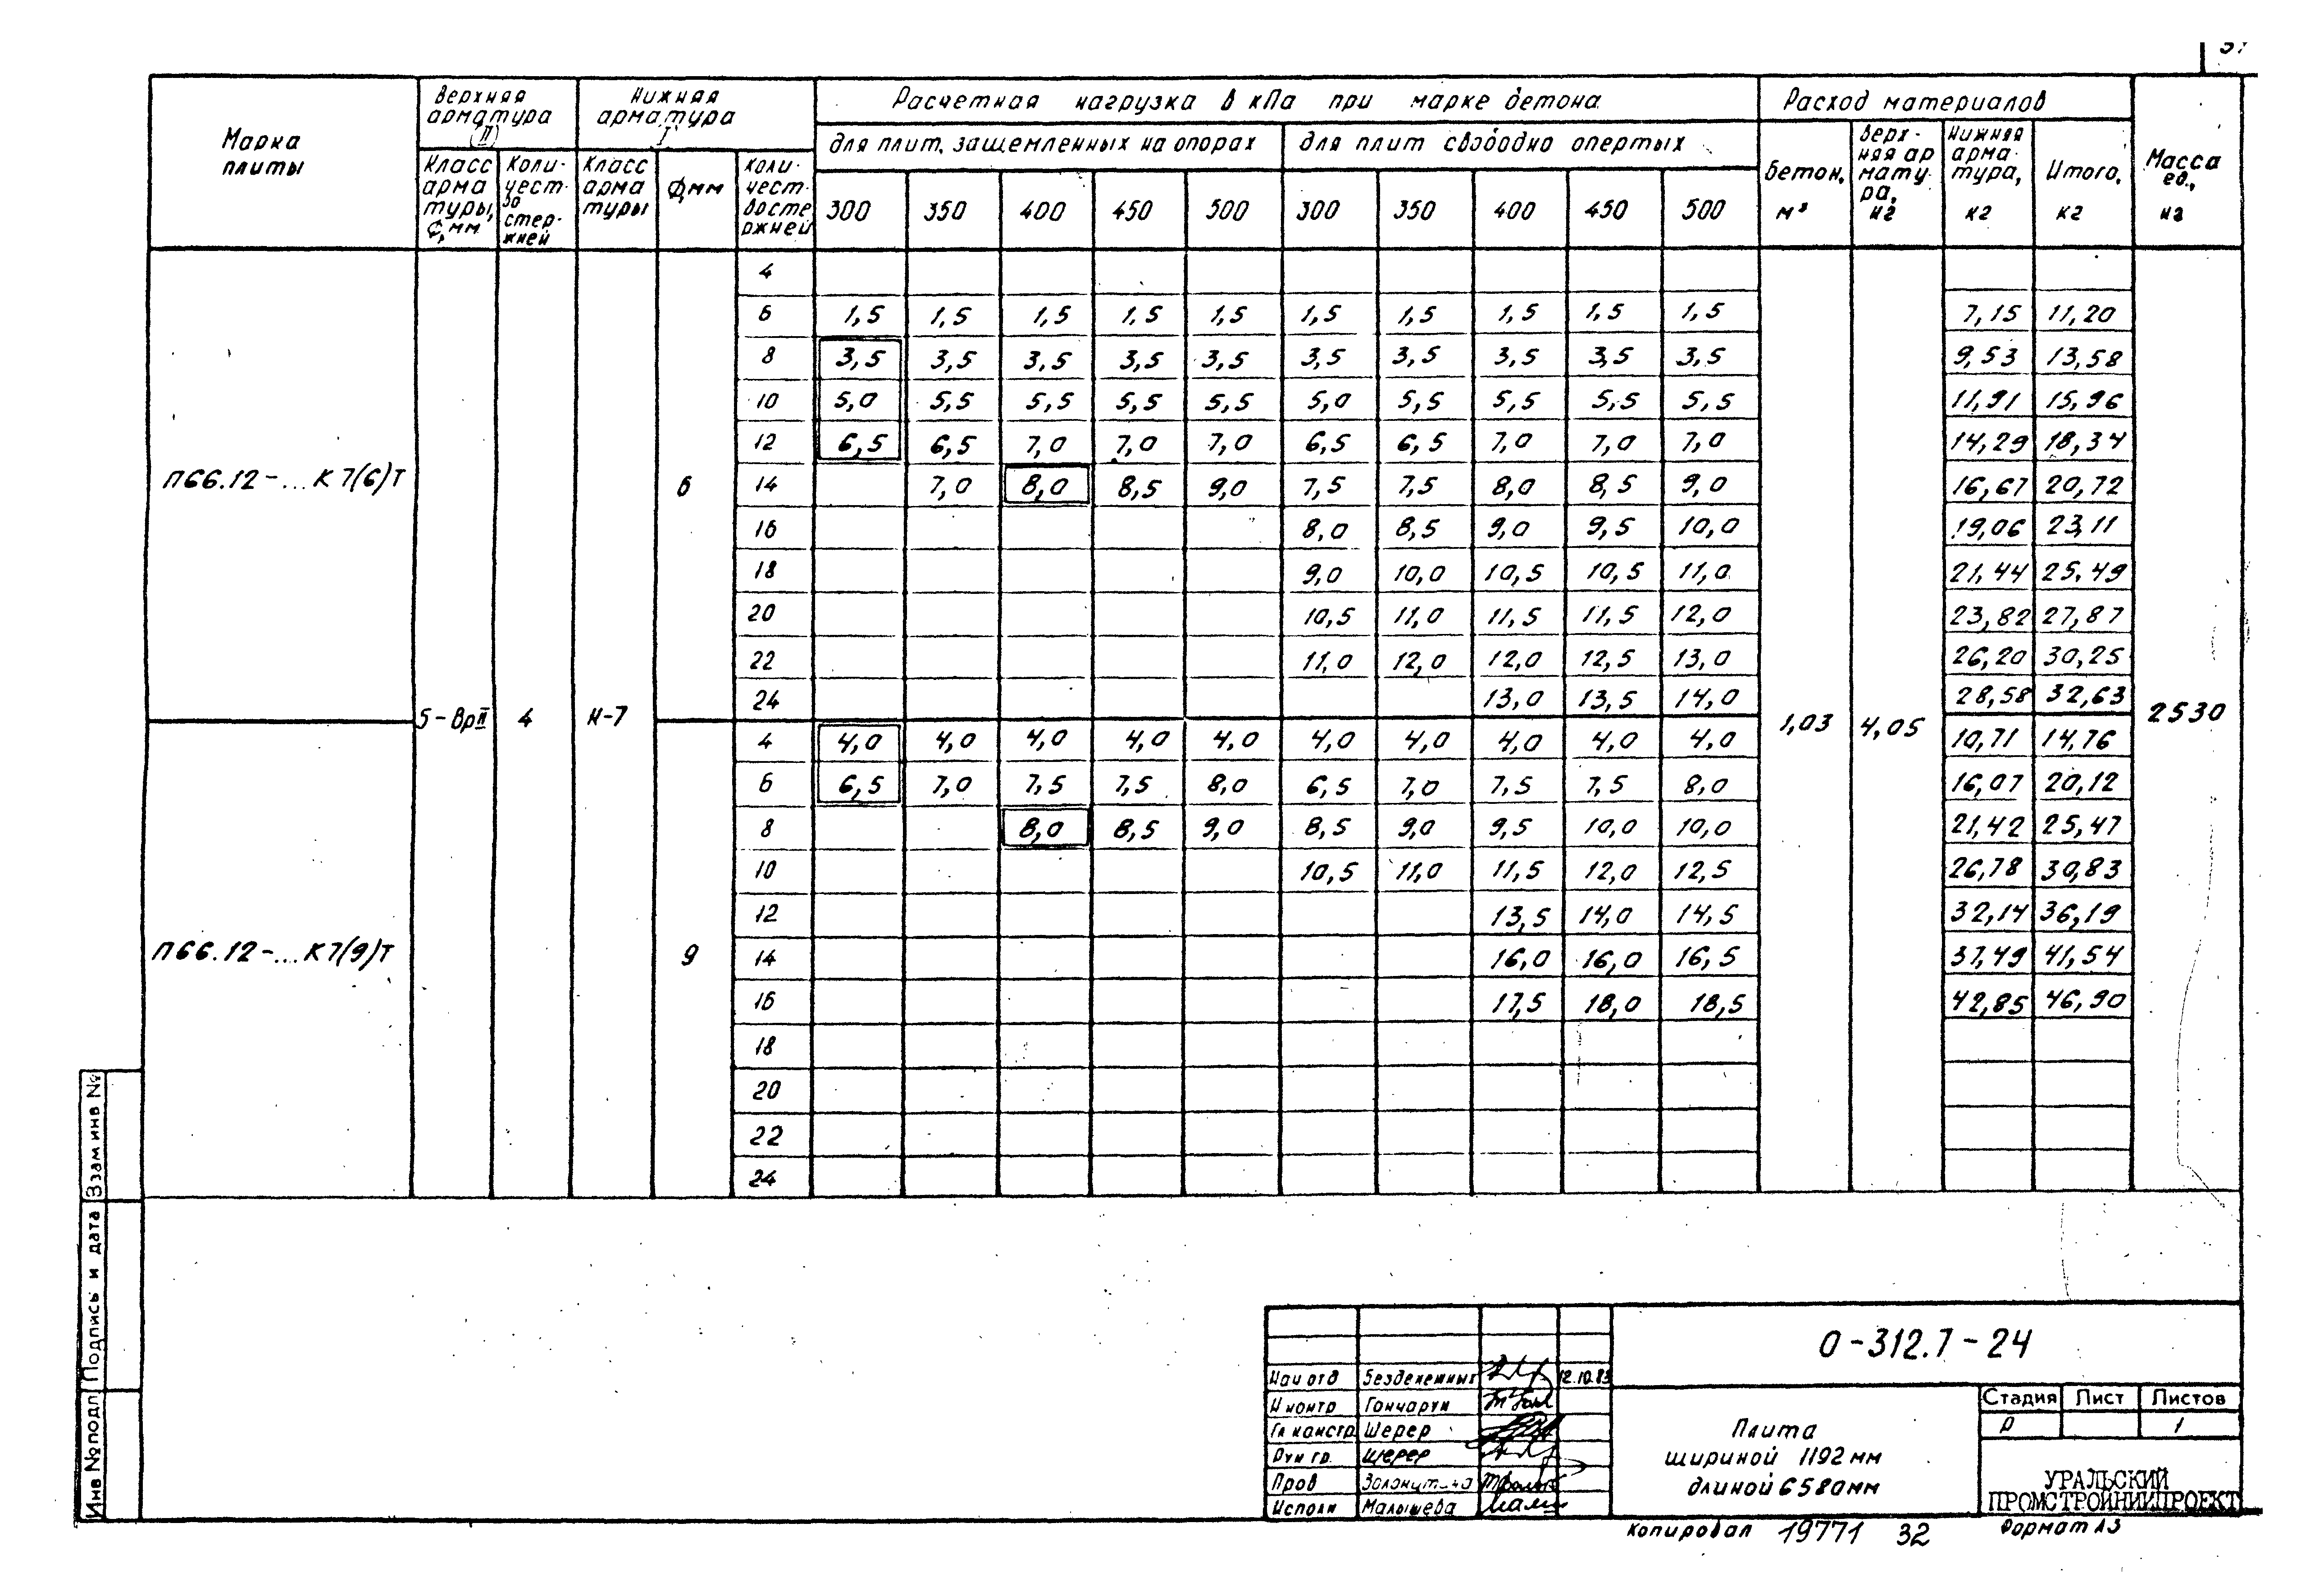 Марка плиты
Верхняя арматура (II)
Нижняя арматура I
Расчетная нагрузка в кПа при марке бетона
Расход материалов
Масса ед., кг
Класс арма туры, ф, мм
Коли- чест- во стер- жней
Класс арма туры
ф, мм
Коли- чест- восте ржней
для плит, защемленных на опорах
для плит свободно опертых
300 350 400 450 500 300 350 400 450 500
Бетон, м³
Верх- няя ар мату- ра, кг
Нижняя арма- тура, кг
Итого, кг
П66.12-...К7(6)Т
5-ВрII 4 К-7
6
1,03 4,05
2530
4
6 1,5 1,5 1,5 1,5 1,5 1,5 1,5 1,5 1,5 1,5 7,15 11,20
8 3,5 3,5 3,5 3,5 3,5 3,5 3,5 3,5 3,5 3,5 9,53 13,58
10 5,0 5,5 5,5 5,5 5,5 5,0 5,5 5,5 5,5 5,5 11,91 15,96
12 6,5 6,5 7,0 7,0 7,0 6,5 6,5 7,0 7,0 7,0 14,29 18,34
14 7,0 8,0 8,5 9,0 7,5 7,5 8,0 8,5 9,0 16,67 20,72
16 8,0 8,5 9,0 9,5 10,0 19,06 23,11
18 9,0 10,0 10,5 10,5 11,0 21,44 25,49
20 10,5 11,0 11,5 11,5 12,0 23,82 27,87
22 11,0 12,0 12,0 12,5 13,0 26,20 30,25
24 13,0 13,5 14,0 28,58 32,63
П66.12-...К7(9)Т
9
4 4,0 4,0 4,0 4,0 4,0 4,0 4,0 4,0 4,0 4,0 10,71 14,76
6 6,5 7,0 7,5 7,5 8,0 6,5 7,0 7,5 7,5 8,0 16,07 20,12
8 8,0 8,5 9,0 8,5 9,0 9,5 10,0 10,0 21,42 25,47
10 10,5 11,0 11,5 12,0 12,5 26,78 30,83
12 13,5 14,0 14,5 32,14 36,19
14 16,0 16,0 16,5 37,49 41,54
16 17,5 18,0 18,5 42,85 46,90
18
20
22
24
Взам инв №
Подпись и дата
Инв № подл
0-312.7-24
Нач отд 12.10.83
Н контр Гончарук
Гл констр Шерер
Рук гр. Шерер
Пров
Исполн Малышева
Плита
шириной 1192 мм
длиной 6580 мм
Стадия Лист Листов
Р 1
УРАЛЬСКИЙ
ПРОМСТРОЙНИИПРОЕКТ
Копировал 19771 32 Формат А3